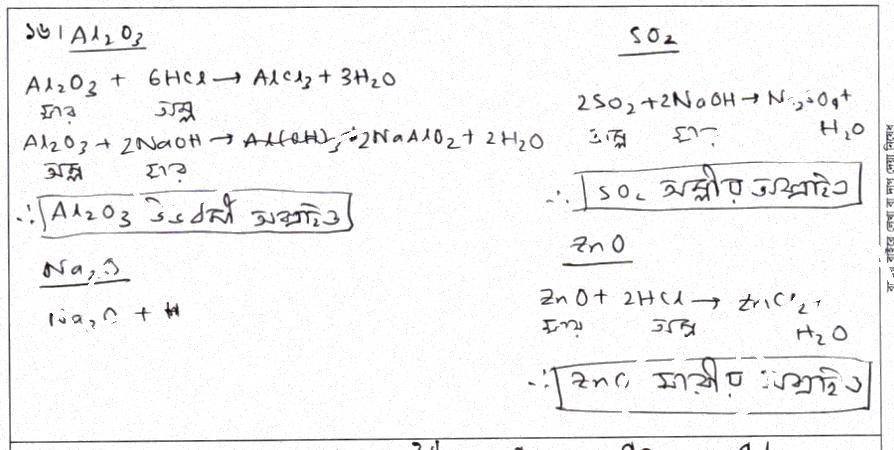 ১৬। Al₂O₃
Al₂O₃ + 6HCl → AlCl₃ + 3H₂O
ক্ষার অম্ল
Al₂O₃ + 2NaOH → 2NaAlO₂ + 2H₂O
অম্ল ক্ষার
∴ Al₂O₃ উভধর্মী অক্সাইড
Na₂O
Na₂O + H
SO₂
2SO₂ + 2NaOH → Na₂SO₄ +
H₂O
অম্ল ক্ষার
∴ SO₂ অম্লীয় অক্সাইড
ZnO
ZnO + 2HCl → ZnCl₂ +
H₂O
ক্ষার অম্ল
∴ ZnO ক্ষারীয় অক্সাইড